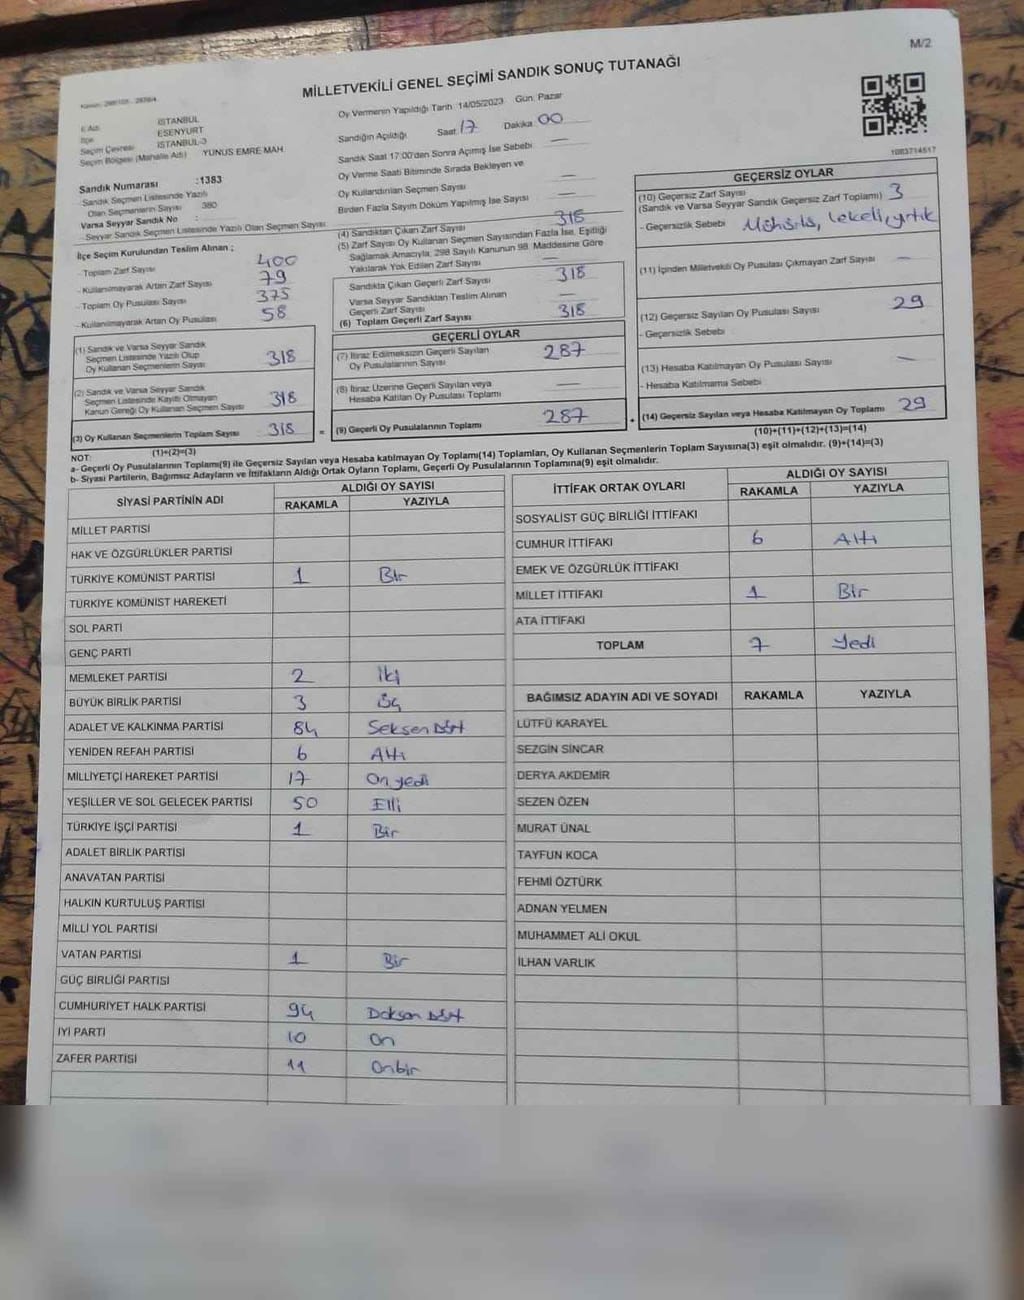 M/2
MİLLETVEKİLİ GENEL SEÇİMİ SANDIK SONUÇ TUTANAĞI
İSTANBUL
İlçe ESENYURT
Seçim Çevresi İSTANBUL-3
Seçim Bölgesi (Mahalle Adı) YUNUS EMRE MAH.
Sandık Numarası :1383
Sandık Seçmen Listesinde Yazılı
Olan Seçmenlerin Sayısı 380
Varsa Seyyar Sandık No :
Seyyar Sandık Seçmen Listesinde Yazılı Olan Seçmen Sayısı
İlçe Seçim Kurulundan Teslim Alınan ;
- Toplam Zarf Sayısı 400
- Kullanılmayarak Artan Zarf Sayısı 79
- Toplam Oy Pusulası Sayısı 375
- Kullanılmayarak Artan Oy Pusulası 58
(1) Sandık ve Varsa Seyyar Sandık
Seçmen Listesinde Yazılı Olup
Oy Kullanan Seçmenlerin Sayısı 318
(2) Sandık ve Varsa Seyyar Sandık
Seçmen Listesinde Kayıtlı Olmayan
Kanun Gereği Oy Kullanan Seçmen Sayısı 318
(3) Oy Kullanan Seçmenlerin Toplam Sayısı 318 =
(1)+(2)=(3)
Oy Vermenin Yapıldığı Tarih 14/05/2023 Gün: Pazar
Sandığın Açıldığı Saat 17 Dakika 00
Sandık Saat 17:00'den Sonra Açılmış İse Sebebi —
Oy Verme Saati Bitiminde Sırada Bekleyen ve
Oy Kullandırılan Seçmen Sayısı —
Birden Fazla Sayım Döküm Yapılmış İse Sayısı —
(4) Sandıktan Çıkan Zarf Sayısı 318
(5) Zarf Sayısı Oy Kullanan Seçmen Sayısından Fazla İse, Eşitliği
Sağlamak Amacıyla, 298 Sayılı Kanunun 98. Maddesine Göre
Yakılarak Yok Edilen Zarf Sayısı —
Sandıkta Çıkan Geçerli Zarf Sayısı 318
Varsa Seyyar Sandıktan Teslim Alınan
Geçerli Zarf Sayısı —
(6) Toplam Geçerli Zarf Sayısı 318
GEÇERLİ OYLAR
(7) İtiraz Edilmeksizin Geçerli Sayılan
Oy Pusulalarının Sayısı 287
(8) İtiraz Üzerine Geçerli Sayılan veya
Hesaba Katılan Oy Pusulası Toplamı —
(9) Geçerli Oy Pusulalarının Toplamı 287 +
1083714517
GEÇERSİZ OYLAR
(10) Geçersiz Zarf Sayısı
(Sandık ve Varsa Seyyar Sandık Geçersiz Zarf Toplamı) 3
- Geçersizlik Sebebi Mühürsüz, lekeli, yırtık
(11) İçinden Milletvekili Oy Pusulası Çıkmayan Zarf Sayısı —
(12) Geçersiz Sayılan Oy Pusulası Sayısı 29
- Geçersizlik Sebebi
(13) Hesaba Katılmayan Oy Pusulası Sayısı —
- Hesaba Katılmama Sebebi
(14) Geçersiz Sayılan veya Hesaba Katılmayan Oy Toplamı 29
(10)+(11)+(12)+(13)=(14)
NOT:
a- Geçerli Oy Pusulalarının Toplamı(9) ile Geçersiz Sayılan veya Hesaba katılmayan Oy Toplamı(14) Toplamları, Oy Kullanan Seçmenlerin Toplam Sayısına(3) eşit olmalıdır. (9)+(14)=(3)
b- Siyasi Partilerin, Bağımsız Adayların ve İttifakların Aldığı Ortak Oyların Toplamı, Geçerli Oy Pusulalarının Toplamına(9) eşit olmalıdır.
SİYASİ PARTİNİN ADI ALDIĞI OY SAYISI
RAKAMLA YAZIYLA
MİLLET PARTİSİ
HAK VE ÖZGÜRLÜKLER PARTİSİ
TÜRKİYE KOMÜNİST PARTİSİ 1 Bir
TÜRKİYE KOMÜNİST HAREKETİ
SOL PARTİ
GENÇ PARTİ
MEMLEKET PARTİSİ 2 İki
BÜYÜK BİRLİK PARTİSİ 3 Üç
ADALET VE KALKINMA PARTİSİ 84 Seksen Dört
YENİDEN REFAH PARTİSİ 6 Altı
MİLLİYETÇİ HAREKET PARTİSİ 17 On yedi
YEŞİLLER VE SOL GELECEK PARTİSİ 50 Elli
TÜRKİYE İŞÇİ PARTİSİ 1 Bir
ADALET BİRLİK PARTİSİ
ANAVATAN PARTİSİ
HALKIN KURTULUŞ PARTİSİ
MİLLİ YOL PARTİSİ
VATAN PARTİSİ 1 Bir
GÜÇ BİRLİĞİ PARTİSİ
CUMHURİYET HALK PARTİSİ 94 Doksan Dört
İYİ PARTİ 10 On
ZAFER PARTİSİ 11 Onbir
İTTİFAK ORTAK OYLARI ALDIĞI OY SAYISI
RAKAMLA YAZIYLA
SOSYALİST GÜÇ BİRLİĞİ İTTİFAKI
CUMHUR İTTİFAKI 6 Altı
EMEK VE ÖZGÜRLÜK İTTİFAKI
MİLLET İTTİFAKI 1 Bir
ATA İTTİFAKI
TOPLAM 7 Yedi
BAĞIMSIZ ADAYIN ADI VE SOYADI RAKAMLA YAZIYLA
LÜTFÜ KARAYEL
SEZGİN SİNCAR
DERYA AKDEMİR
SEZEN ÖZEN
MURAT ÜNAL
TAYFUN KOCA
FEHMİ ÖZTÜRK
ADNAN YELMEN
MUHAMMET ALİ OKUL
İLHAN VARLIK